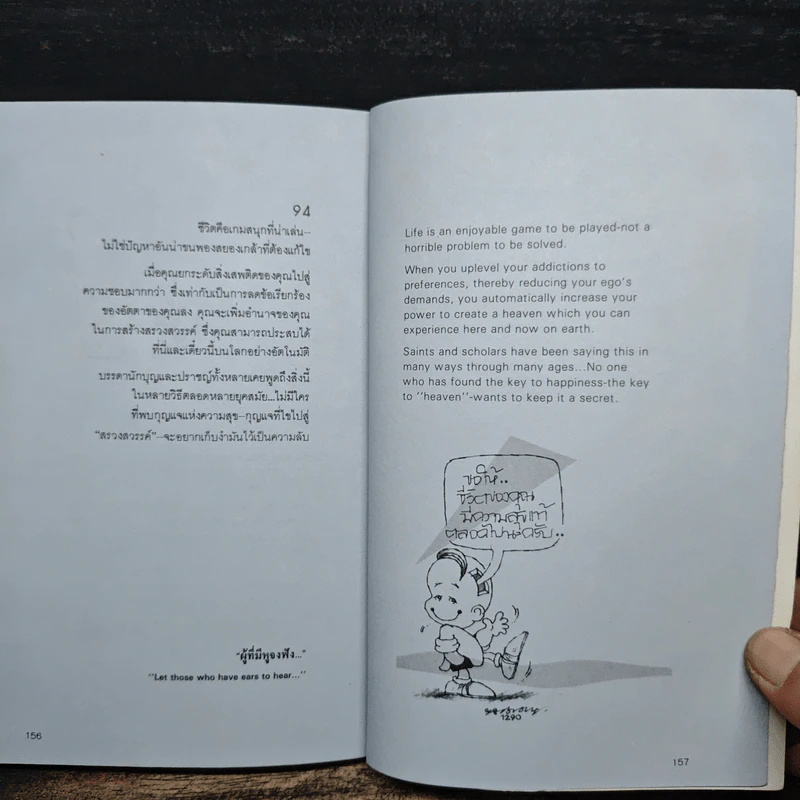 94
ชีวิตคือเกมสนุกที่น่าเล่น--
ไม่ใช่ปัญหาอันน่าขนพองสยองเกล้าที่ต้องแก้ไข
เมื่อคุณยกระดับสิ่งเสพติดของคุณไปสู่
ความชอบมากกว่า ซึ่งเท่ากับเป็นการลดข้อเรียกร้อง
ของอัตตาของคุณลง คุณจะเพิ่มอำนาจของคุณ
ในการสร้างสรวงสวรรค์ ซึ่งคุณสามารถประสบได้
ที่นี่และเดี๋ยวนี้บนโลกอย่างอัตโนมัติ
บรรดานักบุญและปราชญ์ทั้งหลายเคยพูดถึงสิ่งนี้
ในหลายวิธีตลอดหลายยุคสมัย...ไม่มีใคร
ที่พบกุญแจแห่งความสุข--กุญแจที่ไขไปสู่
"สรวงสวรรค์"--จะอยากเก็บงำมันไว้เป็นความลับ
"ผู้ที่มีหูจงฟัง..."
"Let those who have ears to hear..."
156
Life is an enjoyable game to be played-not a
horrible problem to be solved.
When you uplevel your addictions to
preferences, thereby reducing your ego's
demands, you automatically increase your
power to create a heaven which you can
experience here and now on earth.
Saints and scholars have been saying this in
many ways through many ages...No one
who has found the key to happiness-the key
to "heaven"-wants to keep it a secret.
ขอให้..
ชีวิตของคุณ
มีความสุขแท้
ตลอดไปนะครับ..
1290
157